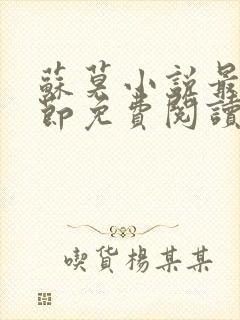 蘇莫小説最
節免費閱讀
喫貨楊某某